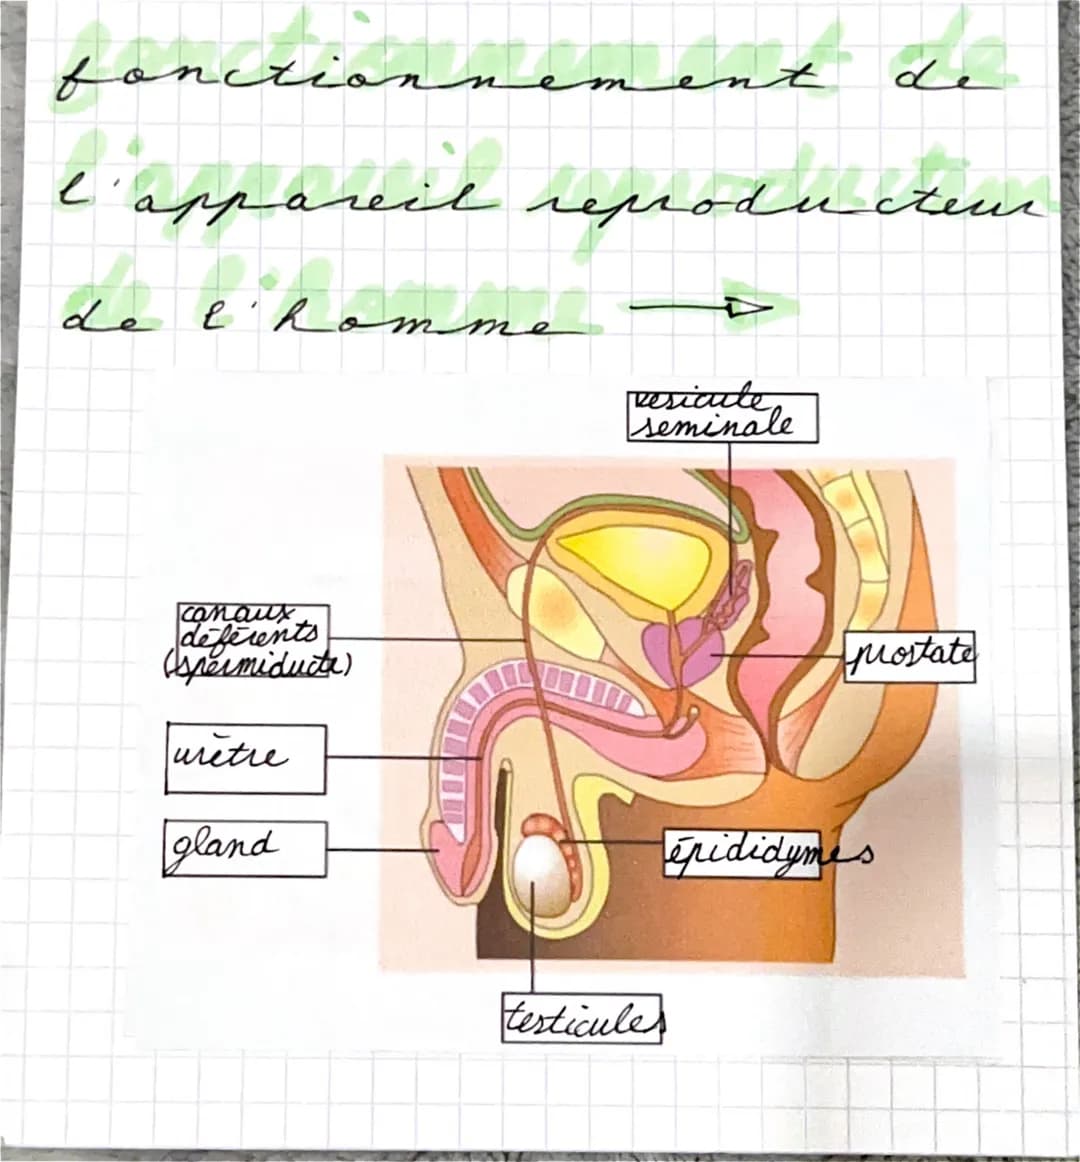 fonctionnement de
l'appareil reproducteur
de l'homme →
vesicule
seminale
canaux
déférents
(spermiducte)
prostate
urètre
gland
épididymes
testicules